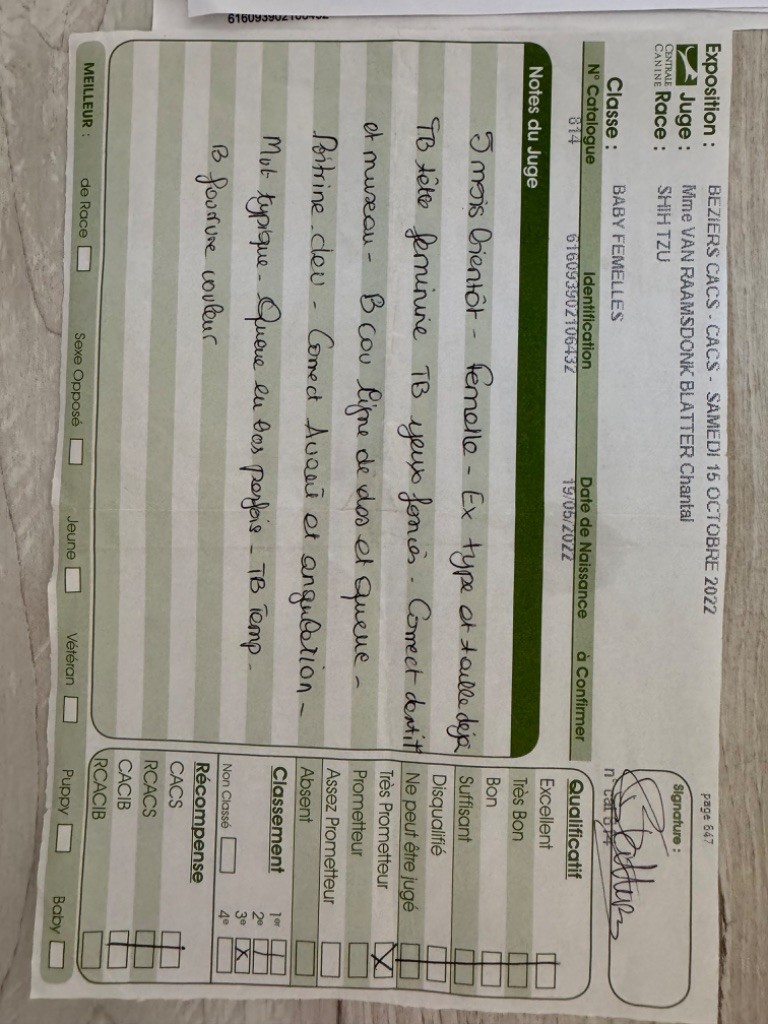 Exposition : BEZIERS CACS - CACS - SAMEDI 15 OCTOBRE 2022
page 647
Juge : Mme VAN RAAMSDONK BLATTER Chantal
CENTRALE CANINE
Race : SHIH TZU
Signature :
Classe : BABY FEMELLES
N° Catalogue Identification Date de Naissance à Confirmer
814 616093902106432 19/05/2022
n° cat 814
Notes du Juge
5 mois bientôt - Femelle - Ex type et taille deja
TB tête feminine TB yeux foncés - Correct dentit
et museau - B cou ligne de dos et queue -
Poitrine dev - Correct Avant et angulation -
Mvt typique - Queue en bas parfois - TB Temp -
B fourrure couleur
Qualificatif
Excellent
Très Bon
Bon
Suffisant
Disqualifié
Ne peut être jugé
Très Prometteur X
Prometteur
Assez Prometteur
Absent
Classement
1er
2e
Non Classé 3e X
4e
Récompense
CACS
RCACS
CACIB
RCACIB
MEILLEUR : de Race Sexe Opposé Jeune Vétéran Puppy Baby